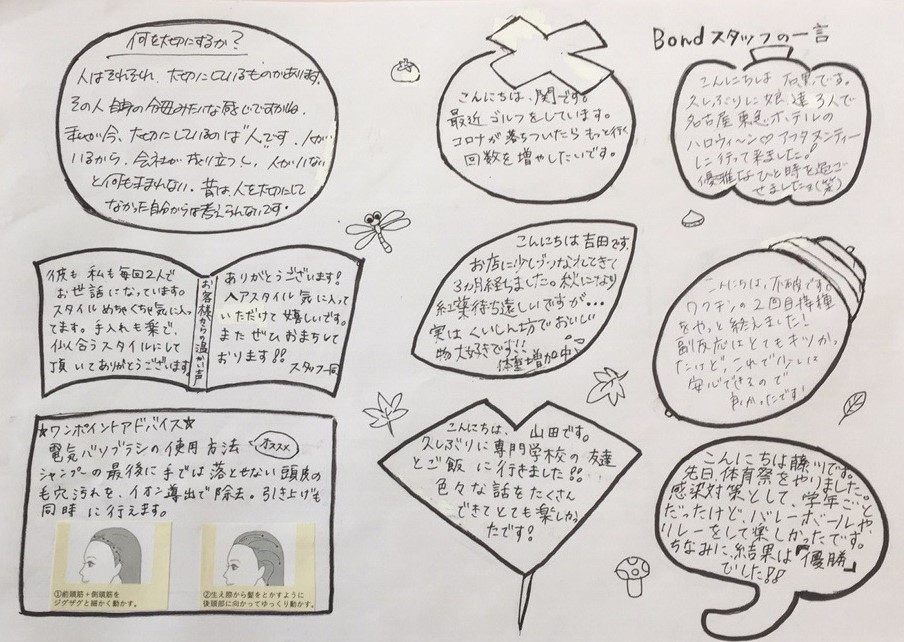 何を大切にするか？
人はそれぞれ、大切にしているものがあります。
その人自身の分母みたいな感じですかね。
私が今、大切にしているのは"人"です。人が
いるから、会社が成り立つし、人がいない
と何も生まれない。昔は人を大切にして
なかった自分からは考えられないです。
こんにちは、関です。
最近ゴルフをしています。
コロナが落ちついたらもっと行く
回数を増やしたいです。
Bondスタッフの一言
こんにちは 石黒です。
久しぶりに娘達3人で
名古屋東急ホテルの
ハロウィ〜ン♡アフタヌンティー
に行って来ました！
優雅なひと時を過ご
せましたヨ(笑)
彼も私も毎回2人で
お世話になっています。
スタイルめちゃくちゃ気に入っ
てます。手入れも楽で、
似合うスタイルにして
頂いてありがとうございます。
お客様からの温かい声
ありがとうございます！
ヘアスタイル気に入って
いただけて嬉しいです。
またぜひおまちして
おります!!
スタッフ一同
こんにちは吉田です。
お店に少しづつなれてきて
3カ月経しました。秋になり
紅葉待ち遠しいですが…
実はくいしん坊でおいしい
物大好きです!!
体重増加中
こんにちは、不破です。
ワクチンの2回目接種
をやっと終えました！
副反応はとてもキツかっ
たけど、これで少しは
安心できるので
良かったです！
☆ワンポイントアドバイス☆
電気バリブラシの使用方法 オススメ
シャンプーの最後に手では落とせない頭皮の
毛穴汚れを、イオン導出で除去。引き上げも
同時に行えます。
①前頭筋+側頭筋を
ジグザグと細かく動かす。
②生え際から髪をとかすように
後頭部に向かってゆっくり動かす。
こんにちは、山田です。
久しぶりに専門学校の友達
とご飯に行きました!!
色々な話をたくさん
できてとても楽しかっ
たです！
こんにちは藤川です。
先日、体育祭をやりました。
感染対策として、学年ごと
だったけど、バレーボールや、
リレーをして楽しかったです。
ちなみに、結果は「優勝」
でした!!